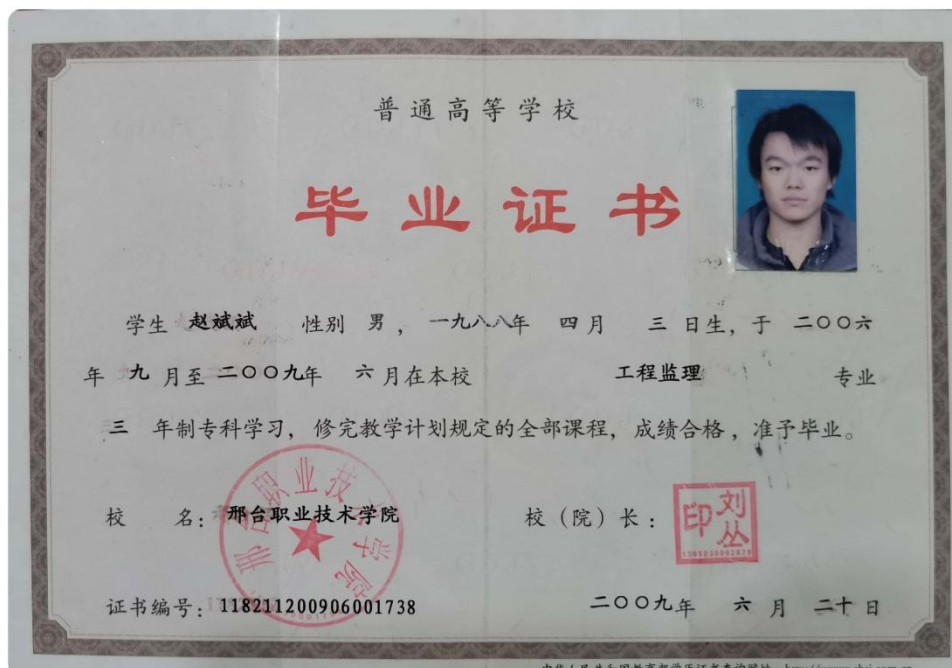 普通高等学校
毕业证书
学生 赵斌斌 性别 男 , 一九八八年 四月 三日生, 于 二〇〇六
年 九 月至 二〇〇九年 六 月在本校 工程监理 专业
三 年制专科学习, 修完教学计划规定的全部课程, 成绩合格, 准予毕业。
校 名: 邢台职业技术学院
邢台职业技术学院
校（院）长:
刘丛印
证书编号: 118211200906001738
二〇〇九年 六 月 二十 日